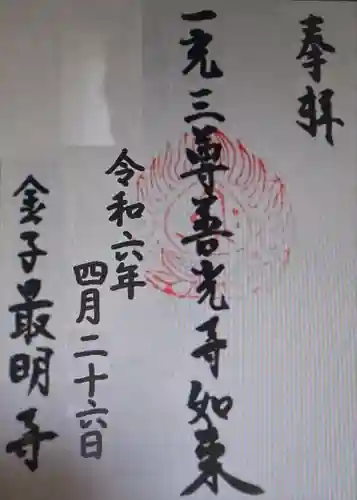 奉拝
一光三尊善光寺如来
令和六年
四月二十六日
金子最明寺